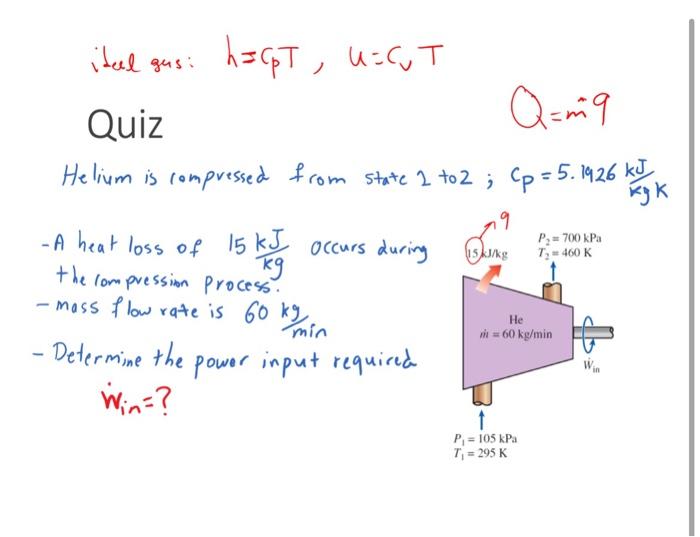 ideal gas: h=CpT, u=CvT
Quiz
Q=ṁq
Helium is compressed from state 1 to 2; Cp=5.1926 kJ/kg K
- A heat loss of 15 kJ/kg occurs during
the compression process.
- mass flow rate is 60 kg/min
- Determine the power input required
Ẇin=?
q
15 kJ/kg
P₂ = 700 kPa
T₂ = 460 K
He
ṁ = 60 kg/min
Ẇin
P₁ = 105 kPa
T₁ = 295 K